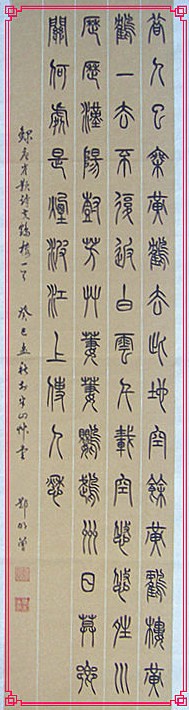 昔人已乘黃鶴去此地空餘黃鶴樓黃
鶴一去不復返白雲千載空悠悠晴川
歷歷漢陽樹芳艸萋萋鸚鵡州日莫鄉
關何處是煙波江上使人愁
錄唐崔顥詩黃鶴樓一首 癸巳 秋 半山艸堂 鄭明